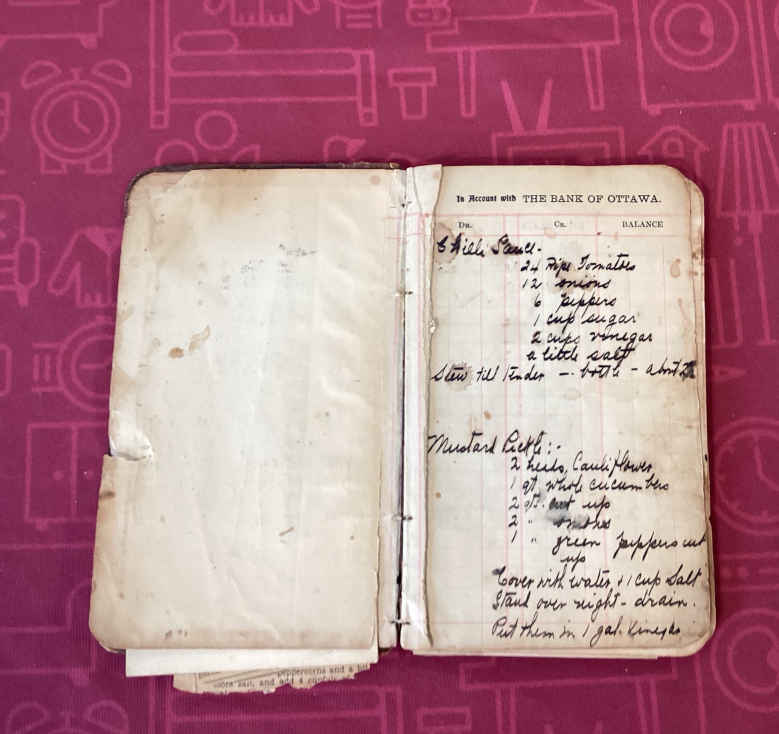 In Account with THE BANK OF OTTAWA.
DR. CR. BALANCE
Chilli Sauce -
24 Ripe Tomatoes
12 onions
6 peppers
1 cup sugar
2 cups vinegar
a little salt
Stew till tender - bottle - about
Mustard Pickle :-
2 heads, Cauliflower
1 qt. whole cucumbers
2 qts. cut up
2 " onions
1 " green peppers cut
up
Cover with water + 1 cup Salt
Stand over night - drain.
Put them in 1 gal. Vinegar
peppercorns and a
more salt, and add a